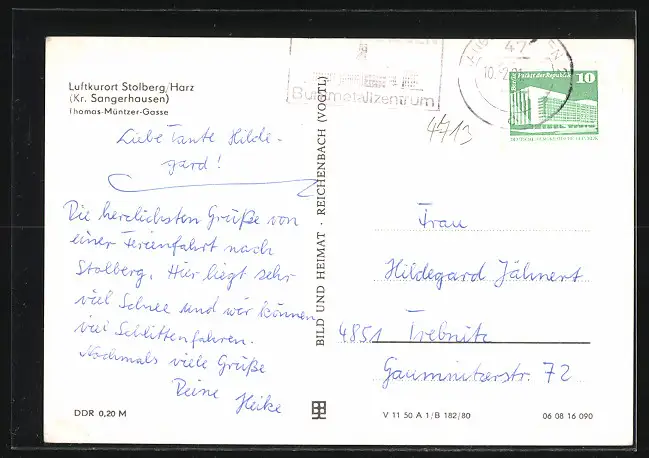 Luftkurort Stolberg/Harz
(Kr. Sangerhausen)
Thomas-Müntzer-Gasse
Liebe Tante Hilde-
gard!
Die herzlichsten Grüße von
einer Ferienfahrt nach
Stolberg. Hier liegt sehr
viel Schnee und wir können
viel Schlittenfahren.
Nochmals viele Grüße
Deine Heike
DDR 0,20 M
BILD UND HEIMAT · REICHENBACH (VOGTL)
Buntmetallzentrum
47
10
Berlin, Palast der Republik
DEUTSCHE DEMOKRATISCHE REPUBLIK
4713
Frau
Hildegard Jähnert
4851 Trebnitz
Gaumnitzerstr. 72
V 11 50 A 1/B 182/80
06 08 16 090